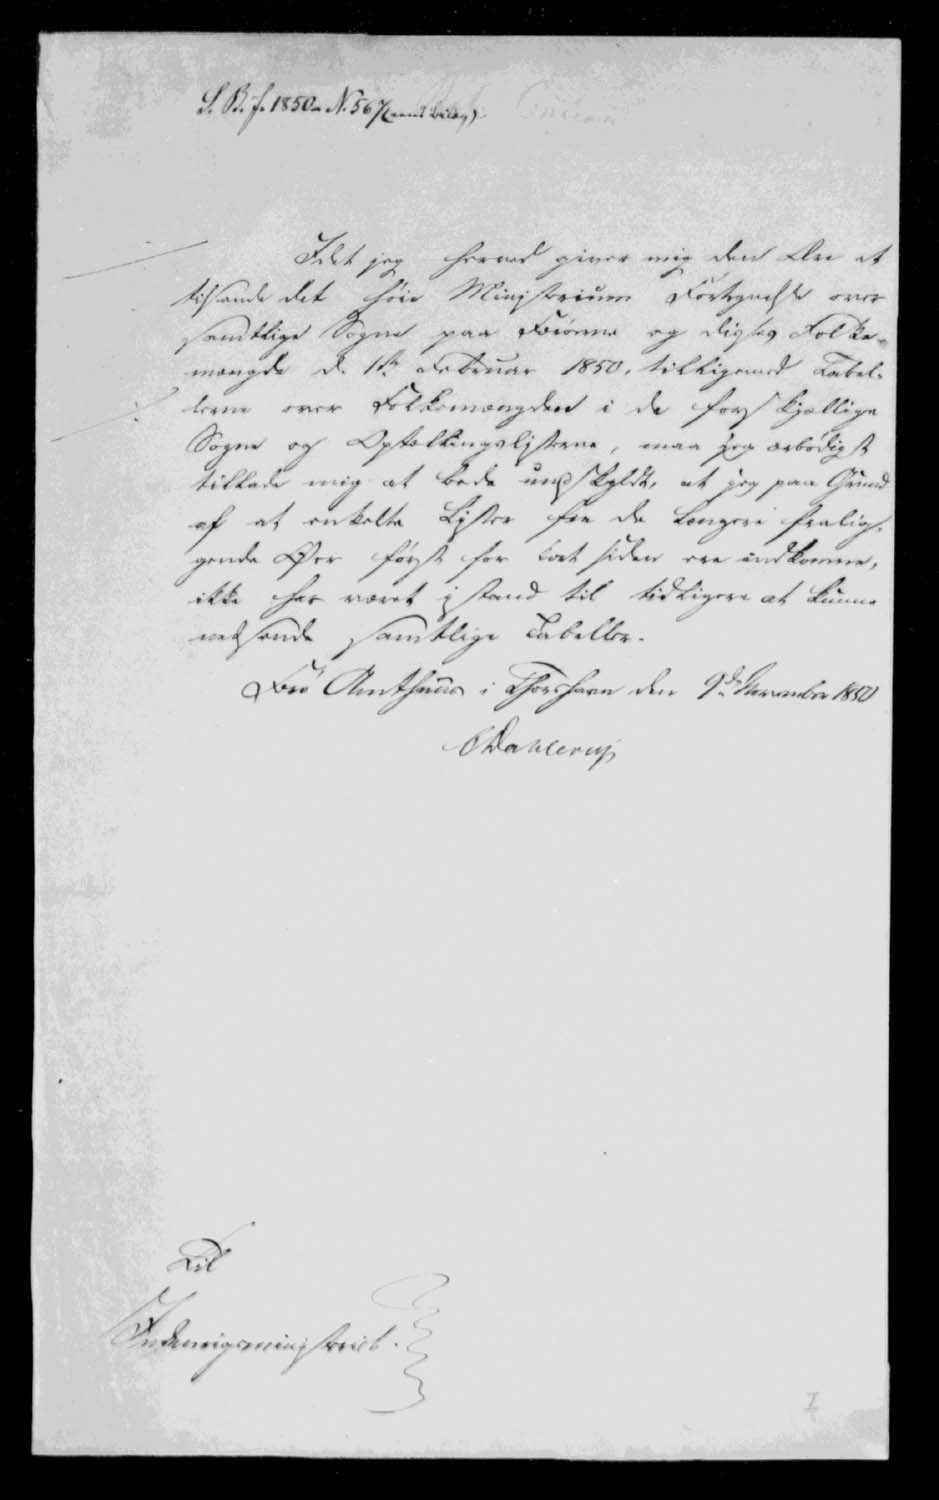 S. B. J. 1850 N. 567 (med Bilag)
Idet jeg herved giver mig den Ære at
tilsende det høie Ministerium Fortegnelse over
samtlige Sogne paa Færøerne og disses Folke-
mængde d. 1ste Februar 1850, tilligemed Tabel-
lerne over Folkemængden i de forskjællige
Sogne og Optællingslisterne, maa jeg ærbødigst
tillade mig at bede undskyldt, at jeg paa Grund
af at enkelte Lister fra de længere fralig-
gende Øer først for kort siden ere indkomne,
ikke har været istand til tidligere at kunne
nedsende samtlige Tabeller.
Færø Amthuus i Thorshavn den 9de November 1850
CDahlerup
Til
Indenrigsministeriet.